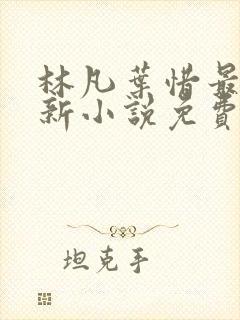 林凡葉惜最
新小說免費
坦克手